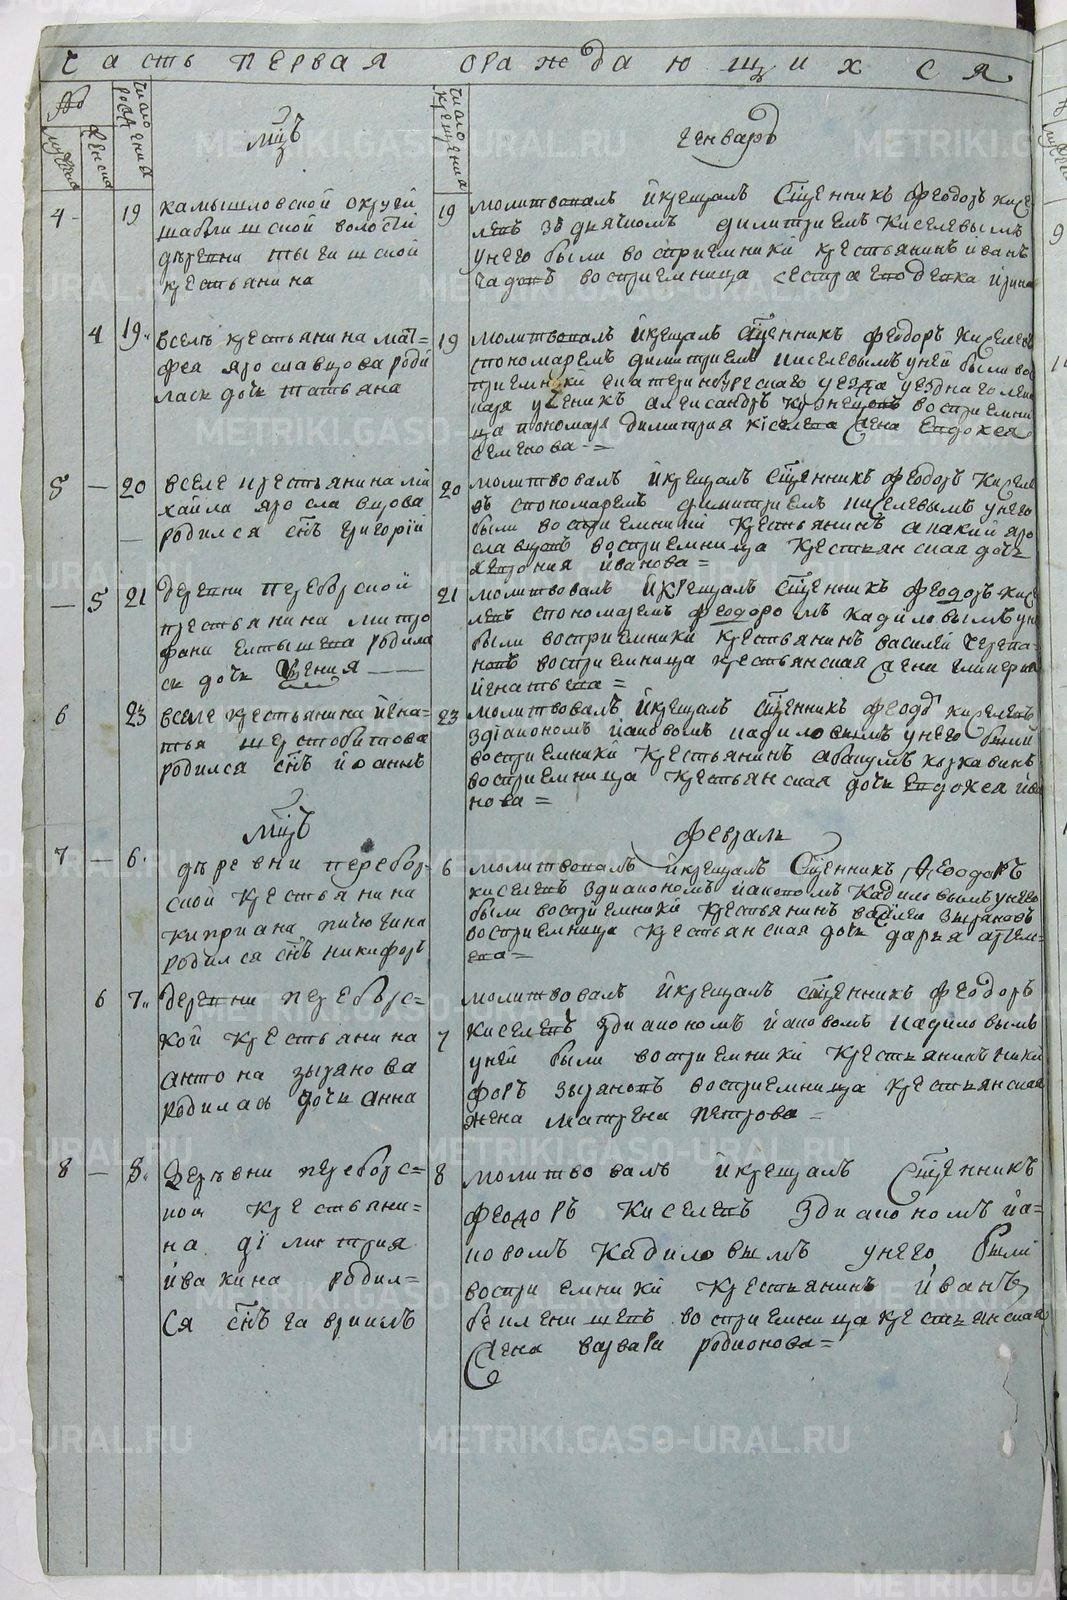 часть первая ораждающихся
№
мужска
женска
число рождения
мцъ
число крещения
генварь
4 - 19
камышловской округи
шаблишской волости
деревни
крестьянина
19
молитвовалъ йкрещалъ Сщенникъ Феодоръ кисе
левъ зъдьячкомъ димитриемъ Киселевымъ
унего были восприемники крестьянинъ иванъ
восприемница сестра
4 19
вселъ крестьянина мат-
фея ярославцова роди
лась дочь татьяна
19
молитвовалъ йкрещалъ Сщенникъ феодоръ Киселевъ
спономаремъ димитриемъ киселевымъ уней были во
приемники екатеринбурскаго уезда
ученикъ александръ восприемни
ца пономаря димитрия киселева жена Евдокея
семенова =
5 — 20
вселе крестьянина ми
хайла ярославцова
родился снъ григорий
20
молитвовалъ йкрещалъ Сщенникъ феодоръ Киселе
въ спономаремъ димитриемъ киселевымъ унего
были восприемники крестьянинъ яро
славцовъ восприемница крестьянская дочь
иванова =
— 5 21
деревни переборской
крестьянина митро
фана родила
сь дочь —
21
молитвовалъ йкрещалъ Сщенникъ Феодоръ кис
левъ спономаремъ феодоромъ кадиловымъ ун
были восприемники крестьянинъ василей черепа-
новъ восприемница крестьянская жена
йгнатьева =
6 23
вселе крестьянина йгна=
тья шерстобитова
родился снъ йоаннъ
23
молитвовалъ йкрещалъ Сщенникъ феодо киселевъ
здиакономъ йаковомъ кадиловымъ унего были
восприемники крестьянинъ
восприемница крестьянская дочь Евдокея ива
нова =
мцъ
февраль
7 — 6
деревни перебор-
ской крестьянина
киприана пичюгина
родился снъ никифоръ
6
молитвовалъ йкрещалъ Сщенникъ Феодоръ
киселевъ здиакономъ йаковомъ Кадиловымъ унего
были восприемники крестьянинъ василей зыряновъ
восприемница крестьянская дочь дарья артем-
ева =
6 7
деревни переборс=
кой крестьянина
антона зырянова
родилась дочь анна
7
молитвовалъ йкрещалъ сщенникъ феодоръ
киселевъ здиакономъ йаковомъ кадиловымъ
уней были восприемники крестьянинъ ники
форъ зыряновъ восприемница крестьянская
жена матрена петрова =
8 — 8
деревни переборс=
кои крестьяни=
на димитрия
ивакина родил=
ся снъ гавриилъ
8
молитвовалъ йкрещалъ Сщенникъ
феодоръ киселевъ здиакономъ йа=
ковомъ кадиловымъ унего были
восприемники крестьянинъ йванъ
восприемница крестьянская
жена варвара родионова =